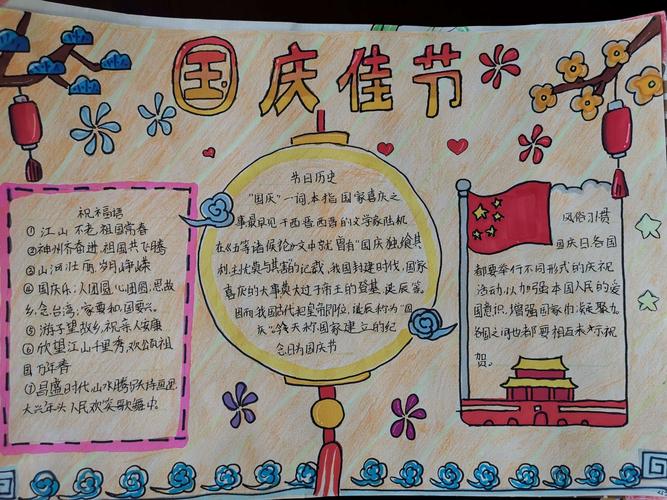 国庆佳节
祝福语
①江山不老,祖国常春
②神州齐奋进,祖国共飞腾
③山河壮丽,岁月峥嵘
④国庆乐:人团圆,心团圆,思故
乡,念台湾:家要和,国要兴。
⑤游子望故乡,祝亲人安康
⑥欣望江山千里秀,欢颂祖
国万年春
⑦昌盛时代,山水腾欢诗画里
大兴年头,人民欢笑歌舞中。
节日历史
"国庆"一词,本指国家喜庆之
事最早见于西晋。西晋的文学家陆机
在《五等诸侯论》文中就曾有"国庆独飨其
利,主忧莫与其害"的记载,我国封建时代,国家
喜庆的大事,莫大过于帝王的登基、诞辰等。
因而我国古代把皇帝即位、诞辰称为"国
庆"。今天称国家建立的纪
念日为国庆节
风俗习惯
国庆日各国
都要举行不同形式的庆祝
活动,以加强本国人民的爱
国意识,增强国家的凝聚力。
各国之间也都要相互表示祝
贺。